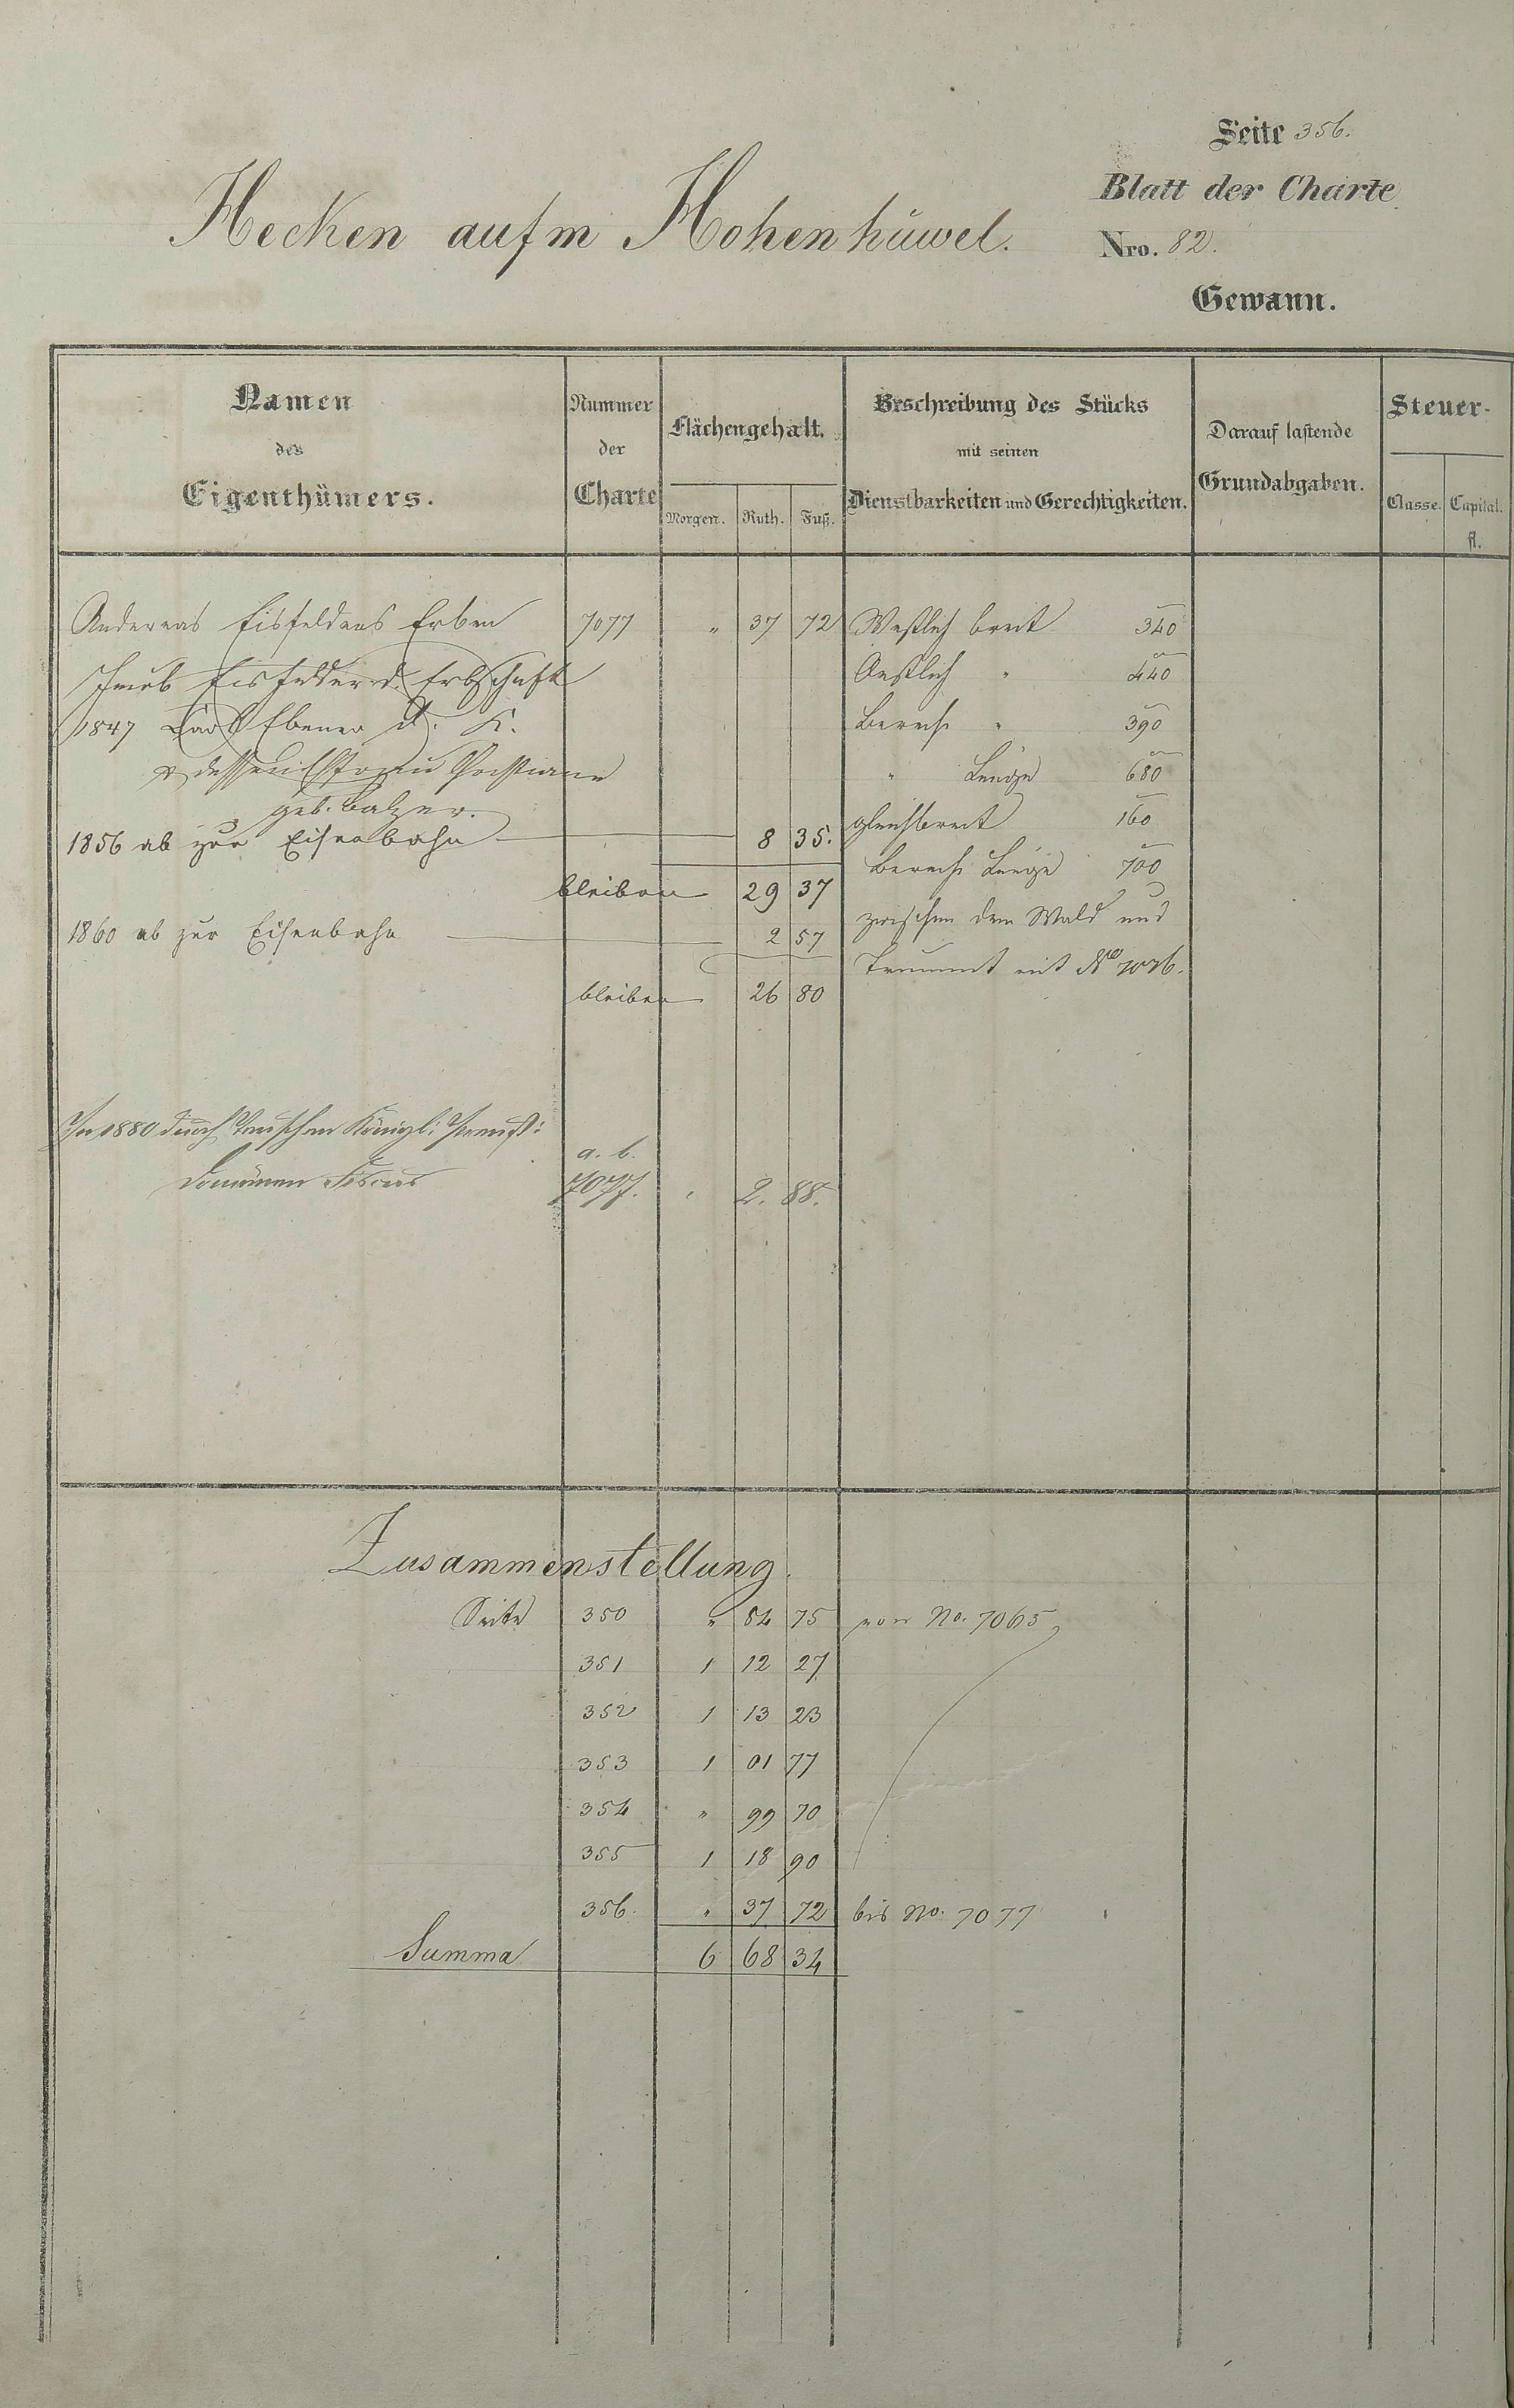 Seite 356.
Blatt der Charte
Hecken aufm Hohenhüwel.
Nro. 82.
Gewann.
Namen des Eigenthümers.
Nummer der Charte
Flächengehalt.
Morgen. Ruth. Fuß.
Beschreibung des Stücks mit seinen Dienstbarkeiten und Gerechtigkeiten.
Darauf lastende Grundabgaben.
Steuer-
Classe. Capital. fl.
Andereas Eisfelders Erben 7077 " 37 72 Westlich breit 340
Jacob Eisfelder d. Erbschaft Oestlich " 440
1847 Carl Ebener d. K. Berech " 390
& dessen Ehefrau Christiane " Länge 680
geb. Balzer.
gleichbreit 160
1856 ab zur Eisenbahn 8 35.
Berech Länge 700
bleiben 29 37
zwischen dem Wald und
1860 ab zur Eisenbahn 2 57
mit No 7076.
bleiben 26 80
In 1880 durch Tauschen Königl: Preuß:
a. b.
Domänen Fiscus 7077. " 2. 88.
Zusammenstellung.
Seite 350 " 84 75 von No. 7065
351 1 12 27
352 1 13 23
353 1 01 77
354 " 99 70
355 1 18 90
356. " 37 72 bis No. 7077
Summa 6 68 34